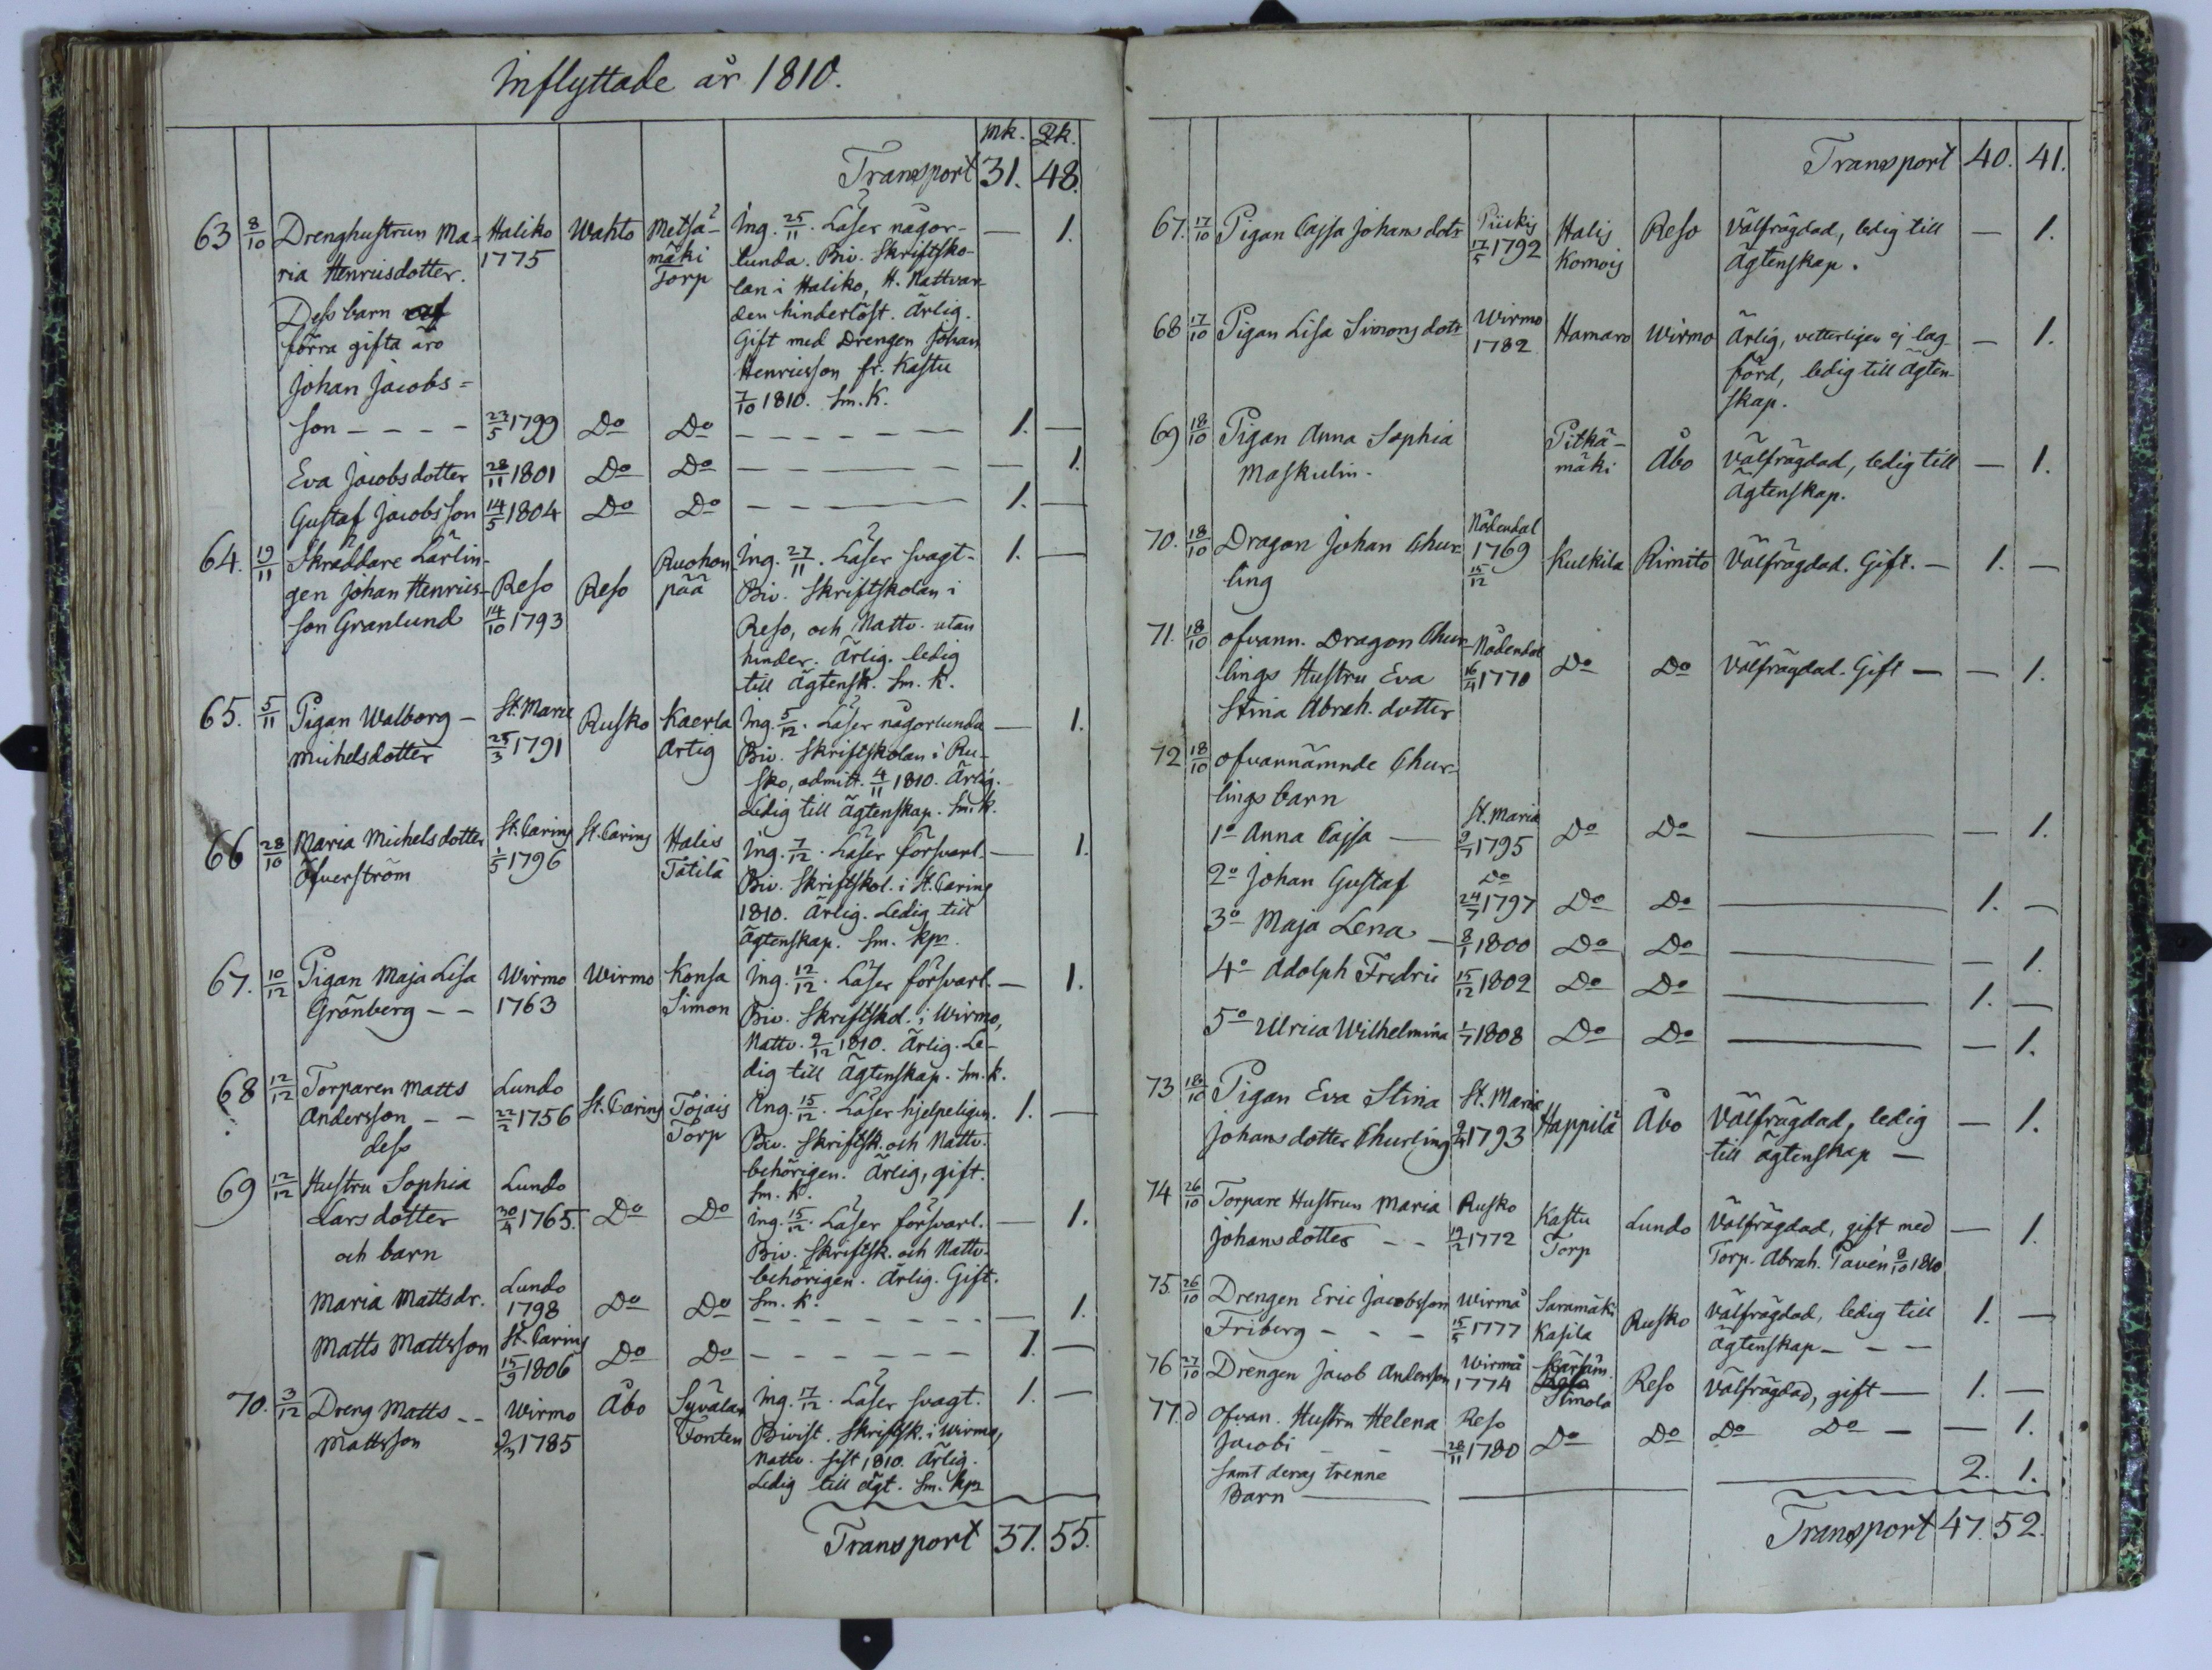 Inflyttade år 1810.
mk. Qk.
Transport 31. 48.
63 8/10 Drenghustrun Ma= Haliko Wahto Metsä- Ing. 25/11. Läser någor- — 1.
ria Henricsdotter. 1775 mäki lunda. Biv. Skriftsko-
Torp lan i Haliko, H. Nattvar-
Dess barn den hinderlöst. Ärlig.
förra gifta äro Gift med Drengen Johan
Johan Jacobs= Henricsson fr. Kastu
7/10 1810. Sm. K.
son - - - - 23/5 1799 Do Do - - - - - - 1. —
Eva Jacobsdotter 28/11 1801 Do Do - - - - - — 1.
Gustaf Jacobsson 14/5 1804 Do Do - - - - 1. —
64. 19/11 Skräddare Lärlin- Ruohon Ing. 27/11. Läser svagt- 1. —
gen Johan Henrics- Reso Reso pää Biv. Skriftskolan i
son Granlund 14/10 1793 Reso, och Nattv. utan
hinder. Ärlig. ledig
till Ägtensk. Sm. K.
65. 5/11 Pigan Walborg - St. Marie Rusko Kaerla Ing. 5/12. Läser någorlunda — 1.
Michelsdotter 25/3 1791 Artig Biv. Skriftskolan i Ru-
sko, admitt. 4/11 1810. Ärlig.
Ledig till Ägtenskap. Sm. K.
66 28/10 Maria Michelsdotter St. Carins St. Carins Halis Ing. 7/12. Läser försvarl. — 1.
Öfverström 1/5 1796 Tätilä Biv. Skriftskol. i St. Carins
1810. Ärlig. Ledig till
Ägtenskap. Sm. kpr.
67. 10/12 Pigan Maja Lisa Wirmo Wirmo Konsa Ing. 12/12. Läser försvarl. — 1.
Grönberg - - 1763 Simon Biv. Skriftskol. i Wirmo,
Nattv. 9/12 1810. Ärlig. Le-
dig till Ägtenskap. Sm. k.
68 12/12 Torparen Matts Lundo St. Carins Tojais Ing. 15/12. Läser hjelpeligen. 1. —
Andersson - - 22/2 1756 Torp Biv. Skriftsk. och Nattv.
dess behörigen. Ärlig, gift.
Sm. k.
69 12/12 Hustru Sophia Lundo
Larsdotter 30/4 1765. Do Do Ing. 15/12. Läser försvarl. — 1.
och barn Biv. Skriftsk. och Nattv.
behörigen. Ärlig. Gift.
Maria Mattsdr. Lundo 1798 Do Do Sm. k. - - - - — 1.
Matts Mattsson St. Carins 15/9 1806 Do Do - - - - - 1. —
70. 3/12 Dreng Matts - - Wirmo Åbo Syvälax Ing. 17/12. Läser svagt. 1. —
Mattsson 1785 Tonten Bivist. Skriftsk. i Wirmo,
Nattv. sist 1810. Ärlig.
Ledig till ägt. Sm. kpr
Transport 37. 55.
Transport 40. 41.
67. 17/10 Pigan Cajsa Johansdotr Piikis Halis Reso Välfrägdad, ledig till — 1.
17/5 1792 Komois Ägtenskap.
68 17/10 Pigan Lisa Simonsdotr Wirmo Hamaro Wirmo Ärlig, vetterligen ej lag- — 1.
1782 förd, ledig till Ägten-
skap.
69 18/10 Pigan Anna Sophia Pitkä- Åbo Välfrägdad, ledig till — 1.
Maskulin. mäki Ägtenskap.
70. 18/10 Dragon Johan Chur- Nådendal Kulkila Rimito Välfrägdad. Gift. — 1. —
ling 1769 15/12
71. 18/10 ofvann. Dragon Chur- Nådendal Do Do Välfrägdad. Gift — — 1.
lings Hustru Eva 16/4 1770
Stina Abrah. dotter
72 18/10 ofvannämnde Chur-
lings barn
1o Anna Cajsa — St. Maria 9/7 1795 Do Do — — 1.
2o Johan Gustaf Do 24/7 1797 Do Do — 1. —
3o Maja Lena — 8/1 1800 Do Do — — 1.
4o Adolph Fredric 15/12 1802 Do Do — 1. —
5o Ulrica Wilhelmina 1/7 1808 Do Do — — 1.
73 18/10 Pigan Eva Stina St. Maria Happila Åbo Välfrägdad, ledig — 1.
Johansdotter Churling 9/4 1793 till ägtenskap —
74 26/10 Torpare Hustrun Maria Rusko Kastu Lundo Välfrägdad, gift med — 1.
Johansdotter - - 19/2 1772 Torp Torp. Abrah. Pavén 8/10 1810
75. 26/10 Drengen Eric Jacobsson Wirmå Saramäki Rusko Välfrägdad, ledig till 1. —
Friberg - - - 15/5 1777 Kasila Ägtenskap - - -
76 27/10 Drengen Jacob Andersson Wirmå 1774 Simola Reso Välfrägdad, gift — 1. —
77. d ofvan. Hustru Helena Reso Do Do Do Do — — 1.
Jacobi - - - 28/11 1780
samt deras trenne 2. 1.
Barn —
Transport 47. 52.